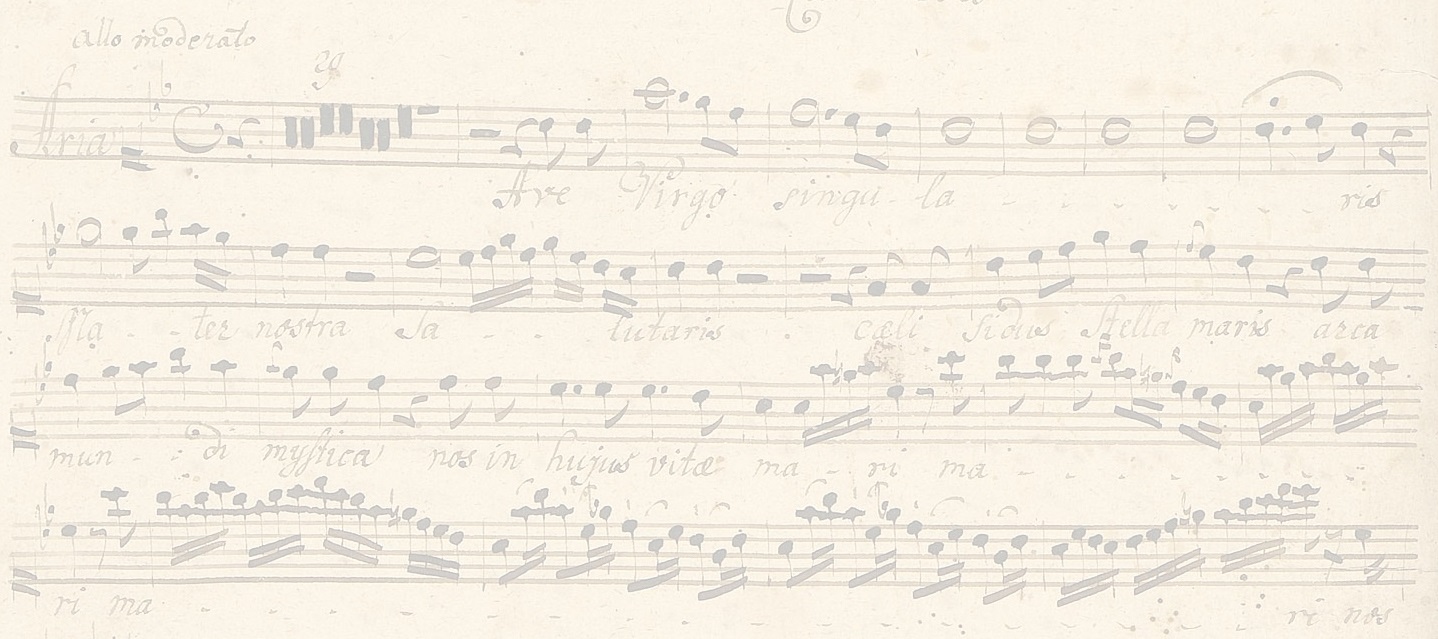 allo moderato
29
Aria
Ave Virgo singu - la - - - - - - - - ris
Ma - - ter nostra Sa - - - lutaris - cæli Sidus Stella maris arca
mun - - di mystica nos in hujus vitæ ma - - ri ma - - - - - - - -
ri ma - - - - - - - - - - - ri nos